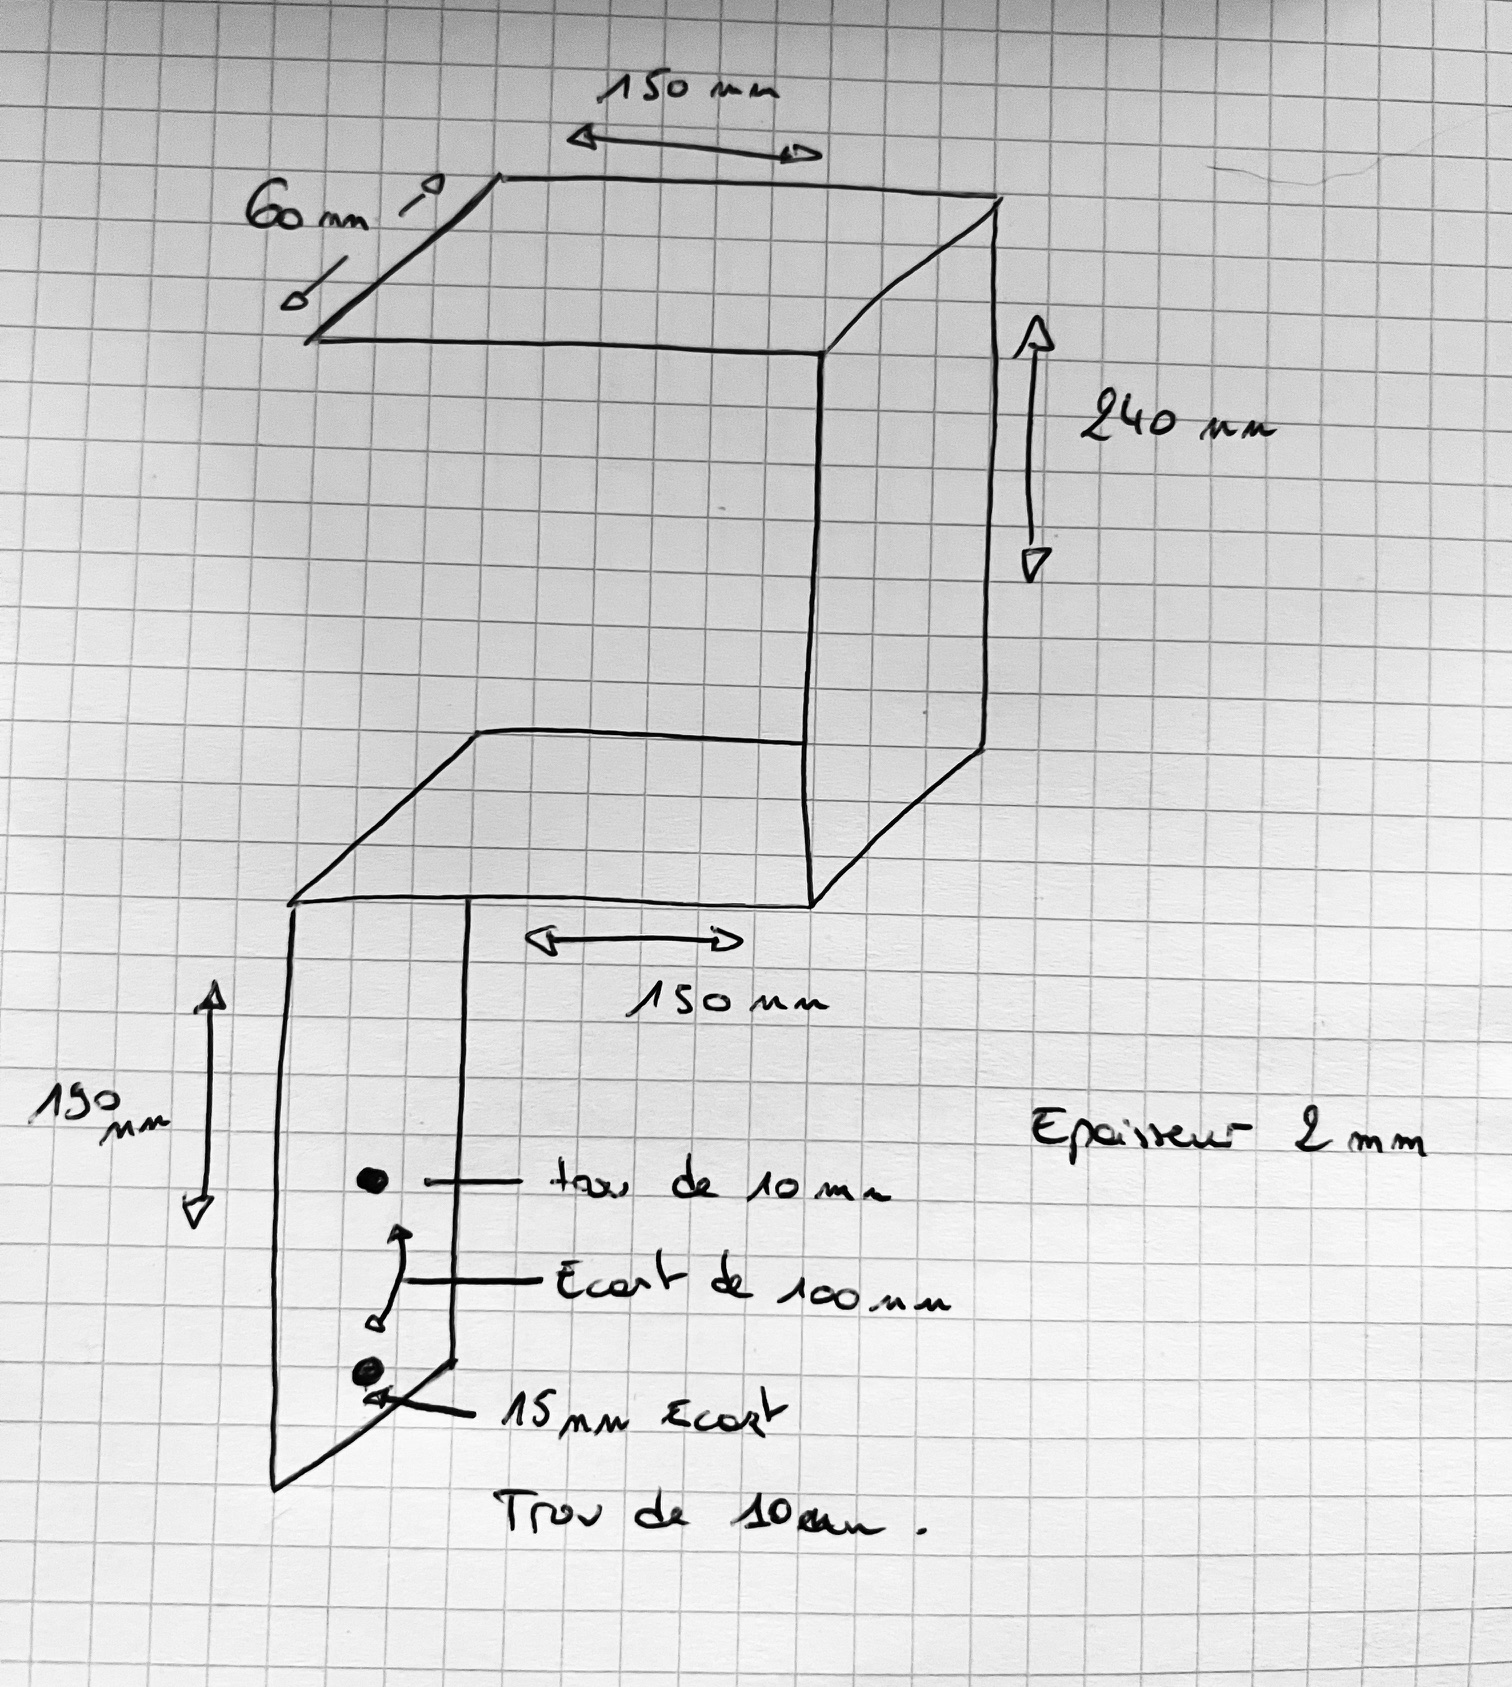 150 mm
60 mm
240 mm
150 mm
190 mm
Epaisseur 2 mm
trou de 10 mm
Ecart de 100 mm
15 mm Ecart
Trou de 10 mm.